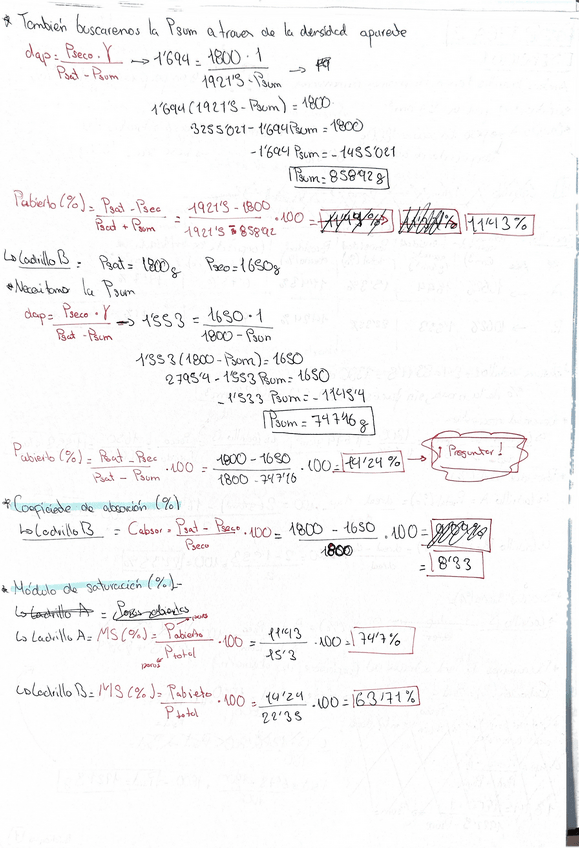 * También buscaremos la Psum a traves de la densidad aparente
dap = Pseco · γ / Psat - Psum → 1'694 = 1800 · 1 / 1921'5 - Psum →
1'694 (1921'5 - Psum) = 1800
3255'021 - 1'694 Psum = 1800
-1'694 Psum = -1455'021
Psum = 858'92 g
Pabierto (%) = Psat - Psec / Psat + Psum = 1921'5 - 1800 / 1921'5 - 858'92 · 100 = 11'43 %
↳ Ladrillo B: Psat = 1800 g Pseco = 1650 g
* Necesitamos la Psum
dap = Pseco · γ / Psat - Psum → 1'553 = 1650 · 1 / 1800 - Psum
1'553 (1800 - Psum) = 1650
2795'4 - 1'553 Psum = 1650
-1'533 Psum = -1145'4
Psum = 747'16 g
Pabierto (%) = Psat - Psec / Psat - Psum · 100 = 1800 - 1650 / 1800 - 747'16 · 100 = 14'24 % → ¡Preguntar!
* Coeficiente de absorción (%)
↳ Ladrillo B = Cabsor = Psat - Pseco / Pseco · 100 = 1800 - 1650 / 1800 · 100 =
= 8'33
* Módulo de saturación (%) -
↳ Ladrillo A = Poros abiertos
↳ Ladrillo A = MS (%) = Pabierto poros / Ptotal poros · 100 = 11'43 / 15'3 · 100 = 74'7 %
↳ Ladrillo B = MS (%) = Pabierto / Ptotal · 100 = 14'24 / 22'35 · 100 = 63'71 %